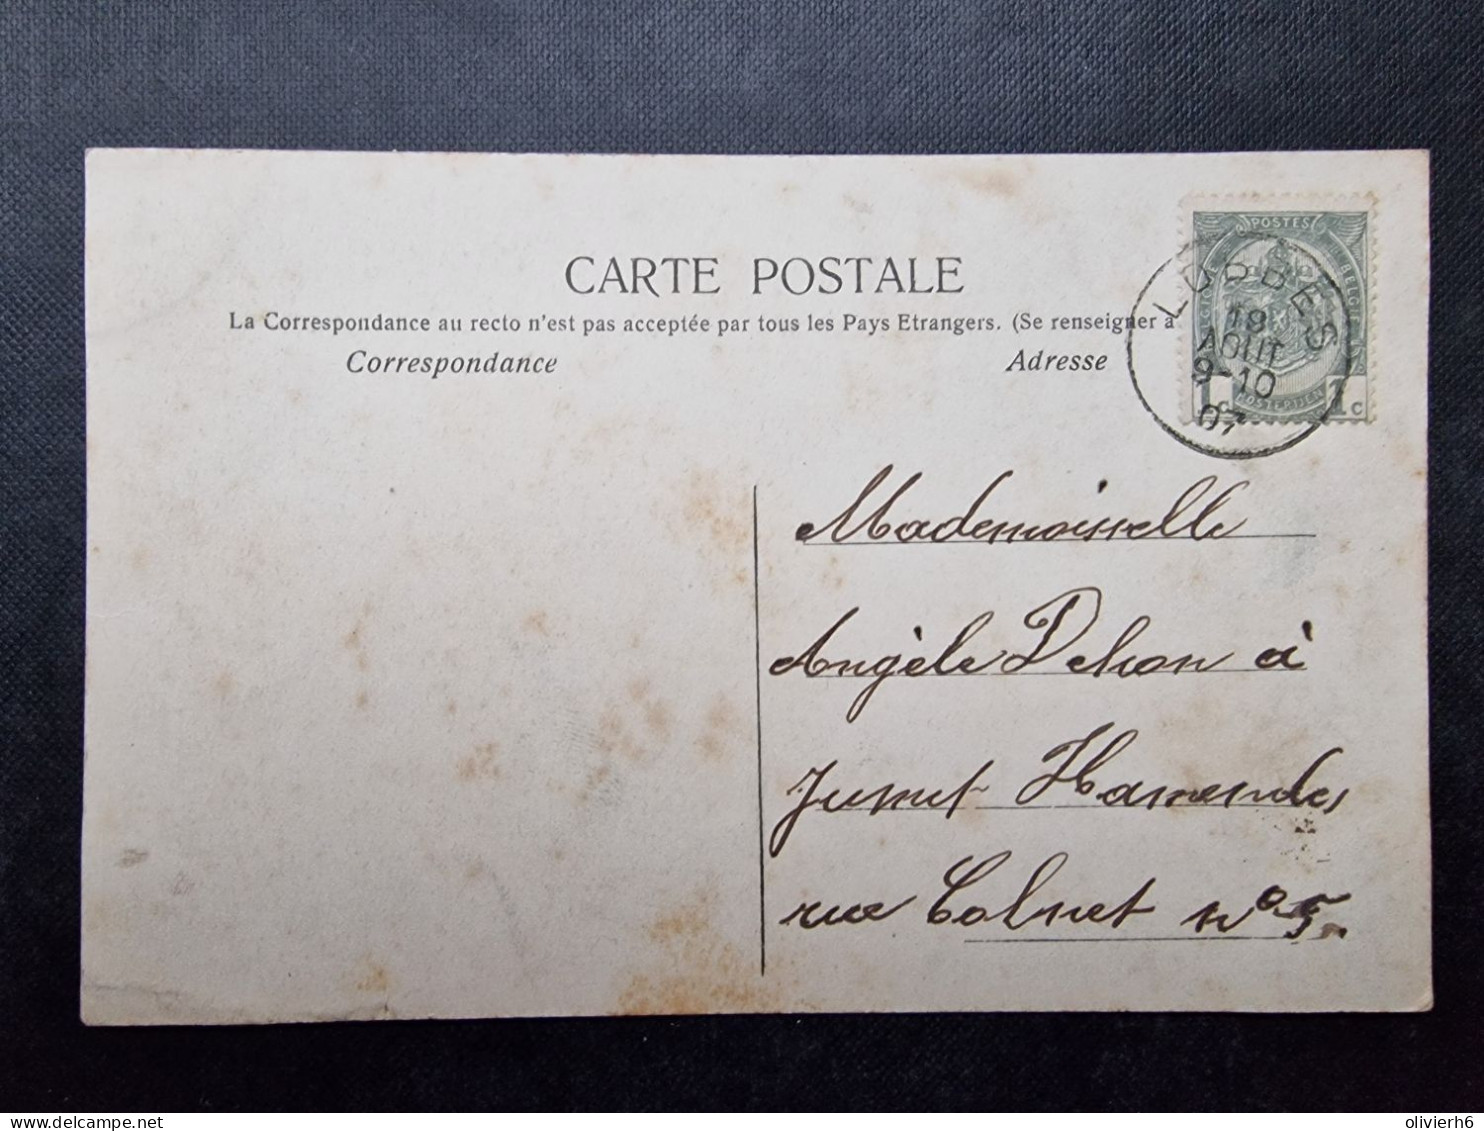 CARTE POSTALE
La Correspondance au recto n'est pas acceptée par tous les Pays Etrangers. (Se renseigner à
Correspondance
Adresse
POSTES
BELGIQUE
POSTERIJEN
1c 1c
LOBBES
18
AOUT
9-10
07
Mademoiselle
Angèle Dehon à
Jumet Hamendes
rue Colnet no 5.
olivierh6